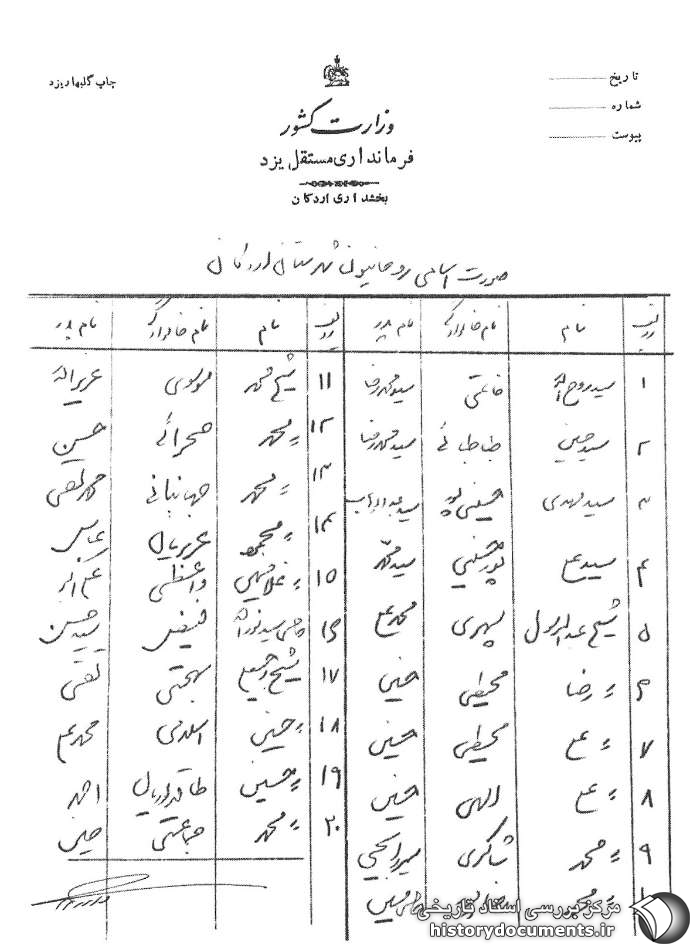 چاپ گلبهار یزد
تاریخ
شماره
پیوست
وزارت کشور
فرمانداری مستقل یزد
بخشداری اردکان
صورت اسامی روحانیون شهرستان اردکان
ردیف نام نام خانوادگی نام پدر ردیف نام نام خانوادگی نام پدر
۱ سید روح اله خاتمی سید محمد رضا ۱۱ شیخ محمد موسوی عزیز اله
۲ سید حسین طباطبائی سید محمد رضا ۱۲ 〃 محمد صحرائی حسین
۳ سید مهدی حسینی پور سید عبدالوهاب ۱۳ 〃 محمد جهانبانی محمد تقی
۴ سید علی پور حسینی سید محمد ۱۴ 〃 محمود عزیزیان عباس
۵ شیخ عبدالرسول سپهری محمد علی ۱۵ 〃 غلامحسین واعظی علی اکبر
۶ 〃 رضا محیطی حسین ۱۶ حاجی سید نوراله فیض سید حسن
۷ 〃 علی محیطی حسین ۱۷ شیخ بهجتی تقی
۸ 〃 علی الهی حسین ۱۸ 〃 حسین اسلامی محمد علی
۹ 〃 محمد شاکری میرزا یحیی ۱۹ 〃 حسین احمد
۱۰ 〃 محمد ۲۰ 〃 محمد جماعتی حسین
مرکز بررسی اسناد تاریخی
historydocuments.ir